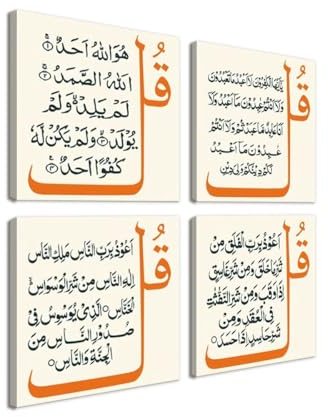 قُلْ
هُوَاللّٰهُ اَحَدٌ
اَللّٰهُ الصَّمَدُ
لَمْ يَلِدْ وَلَمْ
يُولَدْ وَلَمْ يَكُنْ لَهُ
كُفُوًا اَحَدٌ
قُلْ
يٰاَيُّهَا الْكٰفِرُوْنَ لَا اَعْبُدُ مَا تَعْبُدُوْنَ
وَلَا اَنْتُمْ عٰبِدُوْنَ مَا اَعْبُدُ وَلَا
اَنَا عَابِدٌ مَا عَبَدْتُمْ وَلَا اَنْتُمْ
عٰبِدُوْنَ مَا اَعْبُدُ
لَكُمْ دِيْنُكُمْ وَلِيَ دِيْنِ
قُلْ
اَعُوْذُ بِرَبِّ النَّاسِ مَلِكِ النَّاسِ
اِلٰهِ النَّاسِ مِنْ شَرِّ الْوَسْوَاسِ
الْخَنَّاسِ الَّذِيْ يُوَسْوِسُ فِيْ
صُدُوْرِ النَّاسِ مِنَ
الْجِنَّةِ وَالنَّاسِ
قُلْ
اَعُوْذُ بِرَبِّ الْفَلَقِ مِنْ
شَرِّ مَا خَلَقَ وَمِنْ شَرِّ غَاسِقٍ
اِذَا وَقَبَ وَمِنْ شَرِّ النَّفّٰثٰتِ
فِي الْعُقَدِ وَمِنْ
شَرِّ حَاسِدٍ اِذَا حَسَدَ